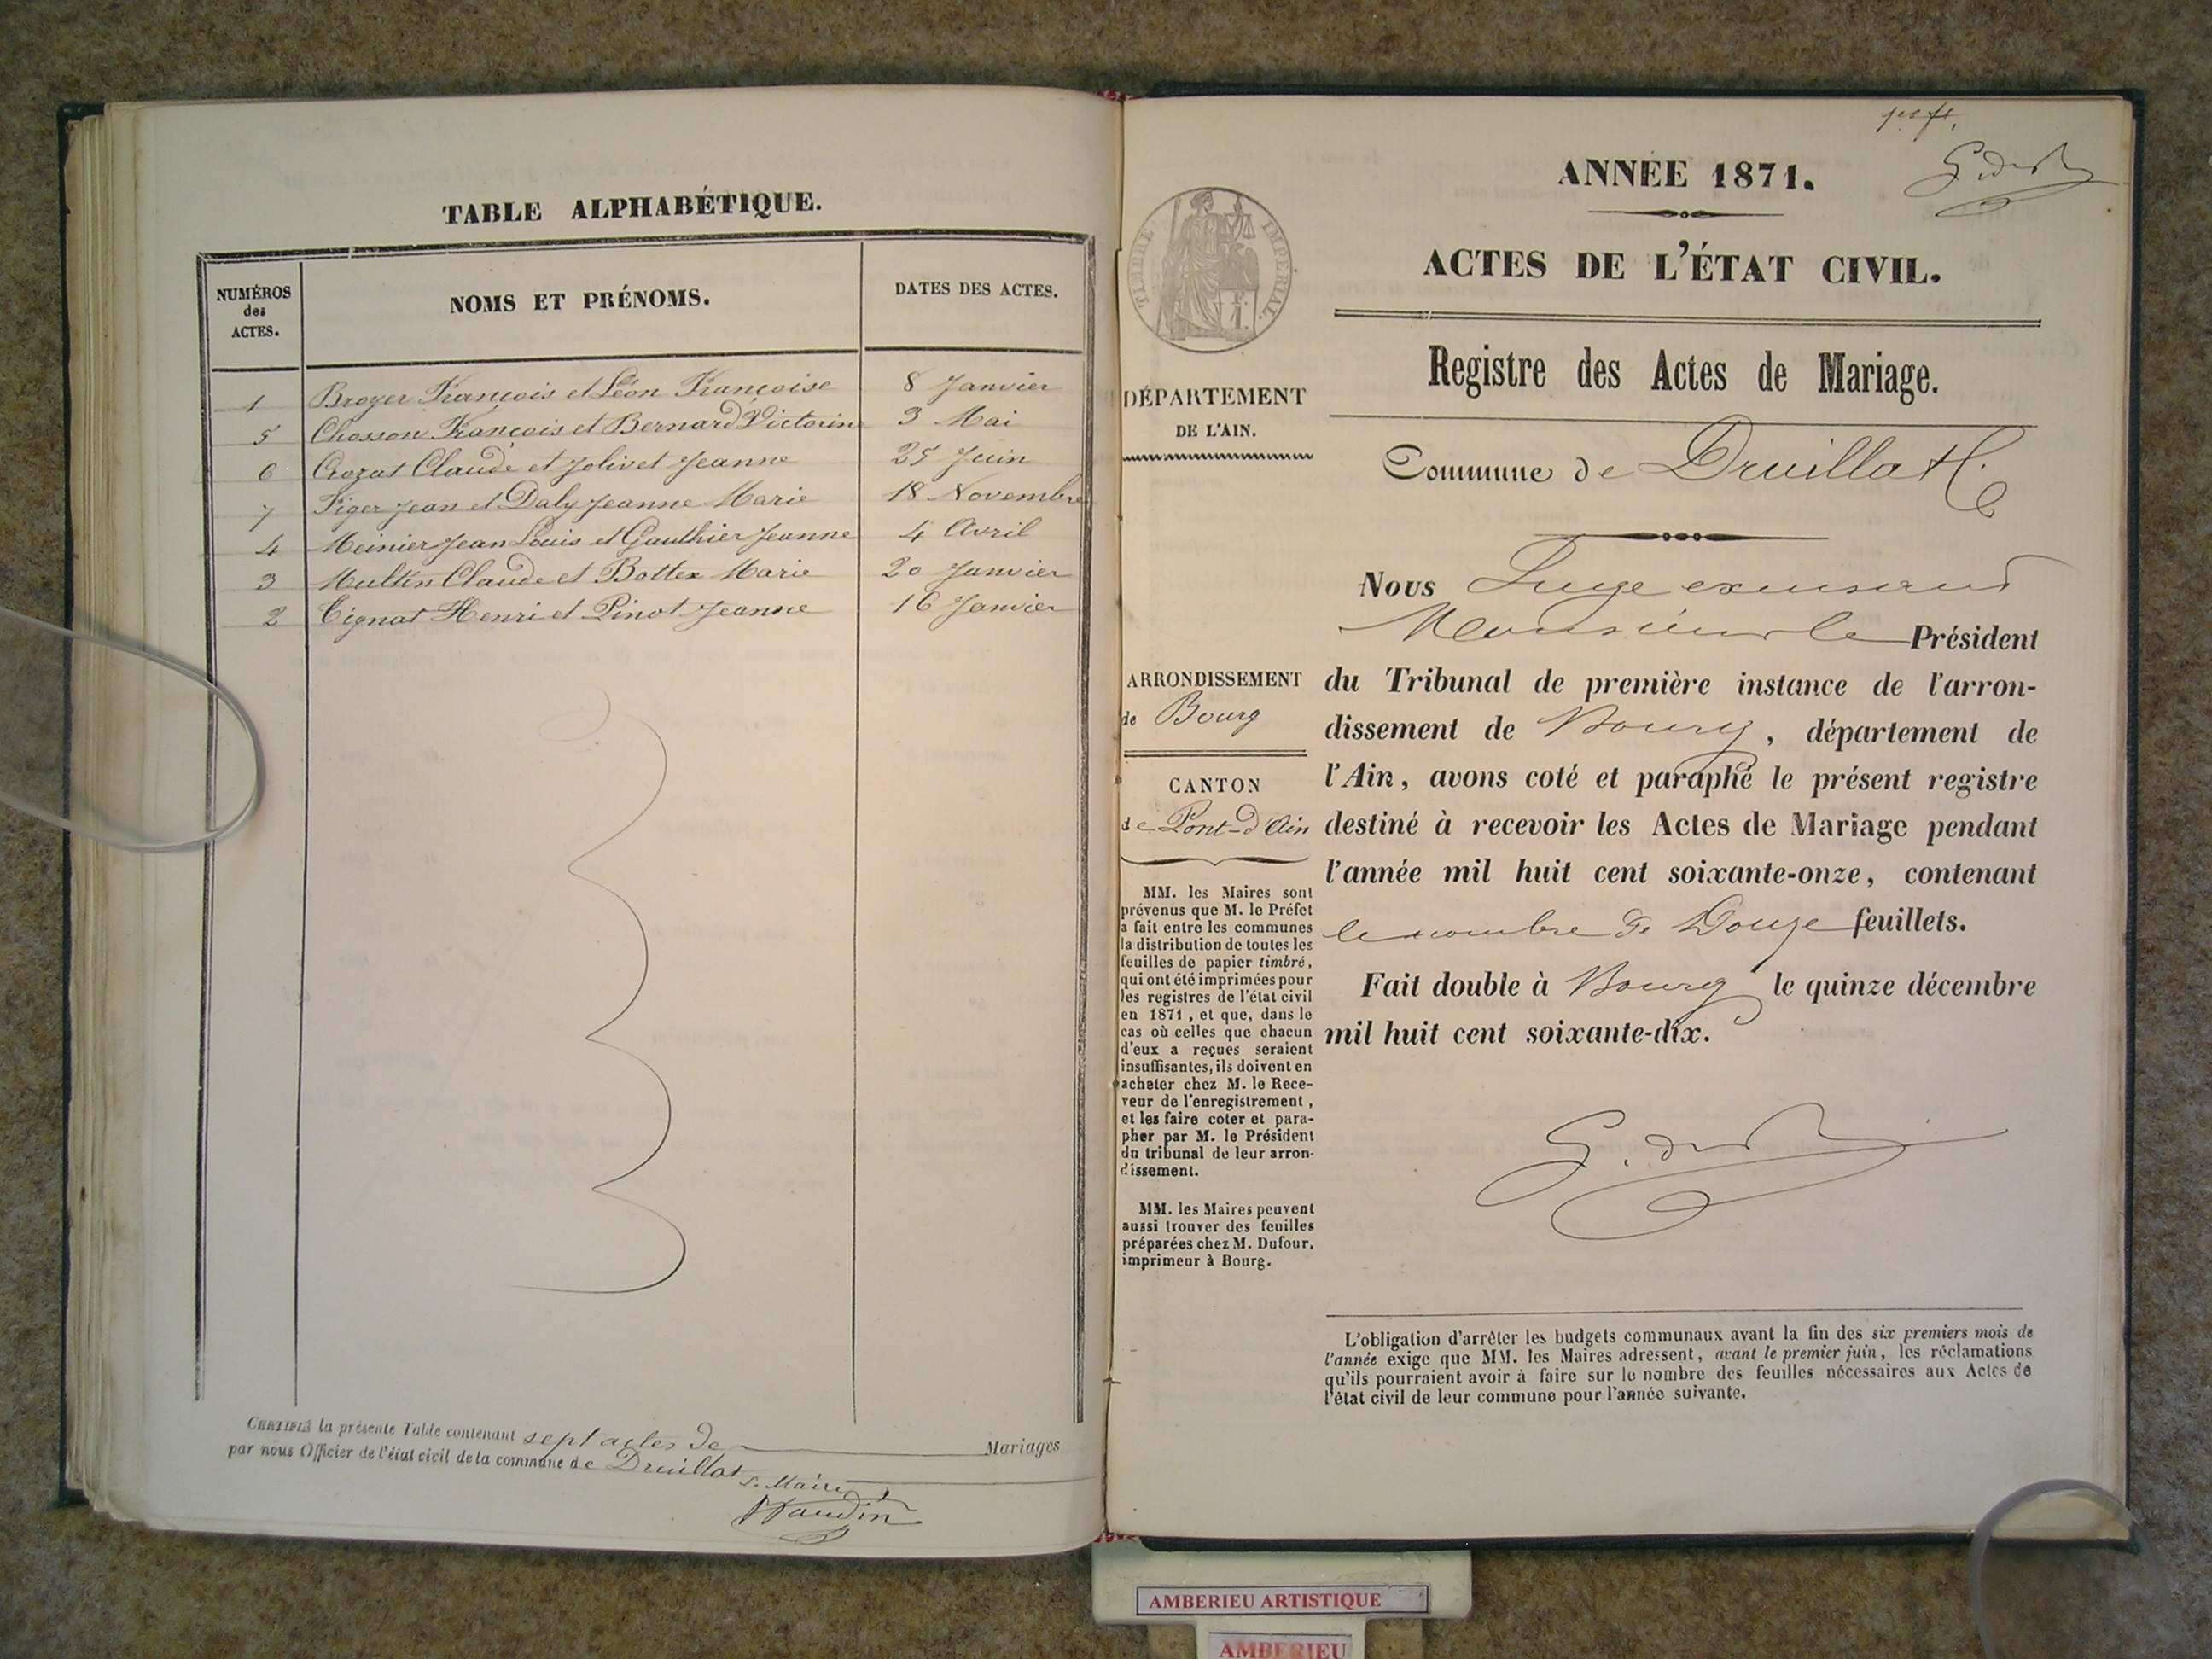 TABLE ALPHABÉTIQUE.
NUMÉROS
des
ACTES.
NOMS ET PRÉNOMS.
DATES DES ACTES.
1 Broyer François et Léon Françoise 8 Janvier
5 Chosson François et Bernard Victorine 3 Mai
6 Crozat Claude et Jolivet Jeanne 25 Juin
7 Figer Jean et Daly Jeanne Marie 18 Novembre
4 Meinier Jean Louis et Gauthier Jeanne 4 Avril
3 Multin Claude et Bottex Marie 20 Janvier
2 Tignat Henri et Pinot Jeanne 16 Janvier
CERTIFIÉ la présente Table contenant sept actes de Mariages
par nous Officier de l'état civil de la commune de Druillat
Le Maire
ANNÉE 1871.
ACTES DE L'ÉTAT CIVIL.
Registre des Actes de Mariage.
Commune de Druillat
TIMBRE IMPÉRIAL
DÉPARTEMENT
DE L'AIN.
ARRONDISSEMENT
de Bourg
CANTON
de Pont-d'Ain
MM. les Maires sont
prévenus que M. le Préfet
a fait entre les communes
la distribution de toutes les
feuilles de papier timbré,
qui ont été imprimées pour
les registres de l'état civil
en 1871, et que, dans le
cas où celles que chacun
d'eux a reçues seraient
insuffisantes, ils doivent en
acheter chez M. le Rece-
veur de l'enregistrement,
et les faire coter et para-
pher par M. le Président
du tribunal de leur arron-
dissement.
MM. les Maires peuvent
aussi trouver des feuilles
préparées chez M. Dufour,
imprimeur à Bourg.
Nous Juge
Monsieur le Président
du Tribunal de première instance de l'arron-
dissement de Bourg, département de
l'Ain, avons coté et paraphé le présent registre
destiné à recevoir les Actes de Mariage pendant
l'année mil huit cent soixante-onze, contenant
le nombre de Douze feuillets.
Fait double à Bourg le quinze décembre
mil huit cent soixante-dix.
L'obligation d'arrêter les budgets communaux avant la fin des six premiers mois de
l'année exige que MM. les Maires adressent, avant le premier juin, les réclamations
qu'ils pourraient avoir à faire sur le nombre des feuilles nécessaires aux Actes de
l'état civil de leur commune pour l'année suivante.
AMBERIEU ARTISTIQUE
AMBERIEU